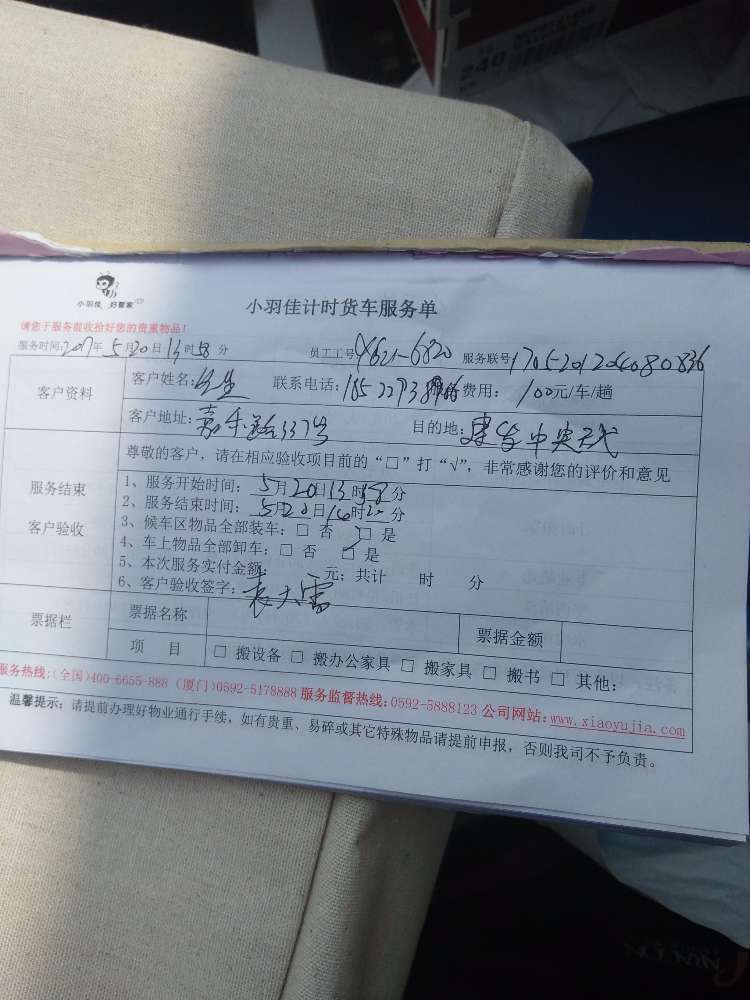 240
小羽佳 好管家
小羽佳计时货车服务单
请您于服务前收拾好您的贵重物品！
服务时间:2017年5月20日13时58分 员工工号 服务联号1705201204080836
客户资料
客户姓名: 联系电话: 费用: 100元/车/趟
客户地址: 嘉禾路337号 目的地: 中央
尊敬的客户，请在相应验收项目前的“□”打“√”，非常感谢您的评价和意见
服务结束
客户验收
1、服务开始时间：5月20日13时58分
2、服务结束时间：5月20日16时20分
3、候车区物品全部装车：□ 否 □ 是
4、车上物品全部卸车：□ 否 □ 是
5、本次服务实付金额： 元；共计 时 分
6、客户验收签字：
票据栏
票据名称 票据金额
项 目 □ 搬设备 □ 搬办公家具 □ 搬家具 □ 搬书 □ 其他：
服务热线:(全国)400-6655-888 (厦门)0592-5178888 服务监督热线:0592-5888123 公司网站:www.xiaoyujia.com
温馨提示：请提前办理好物业通行手续，如有贵重、易碎或其它特殊物品请提前申报，否则我司不予负责。